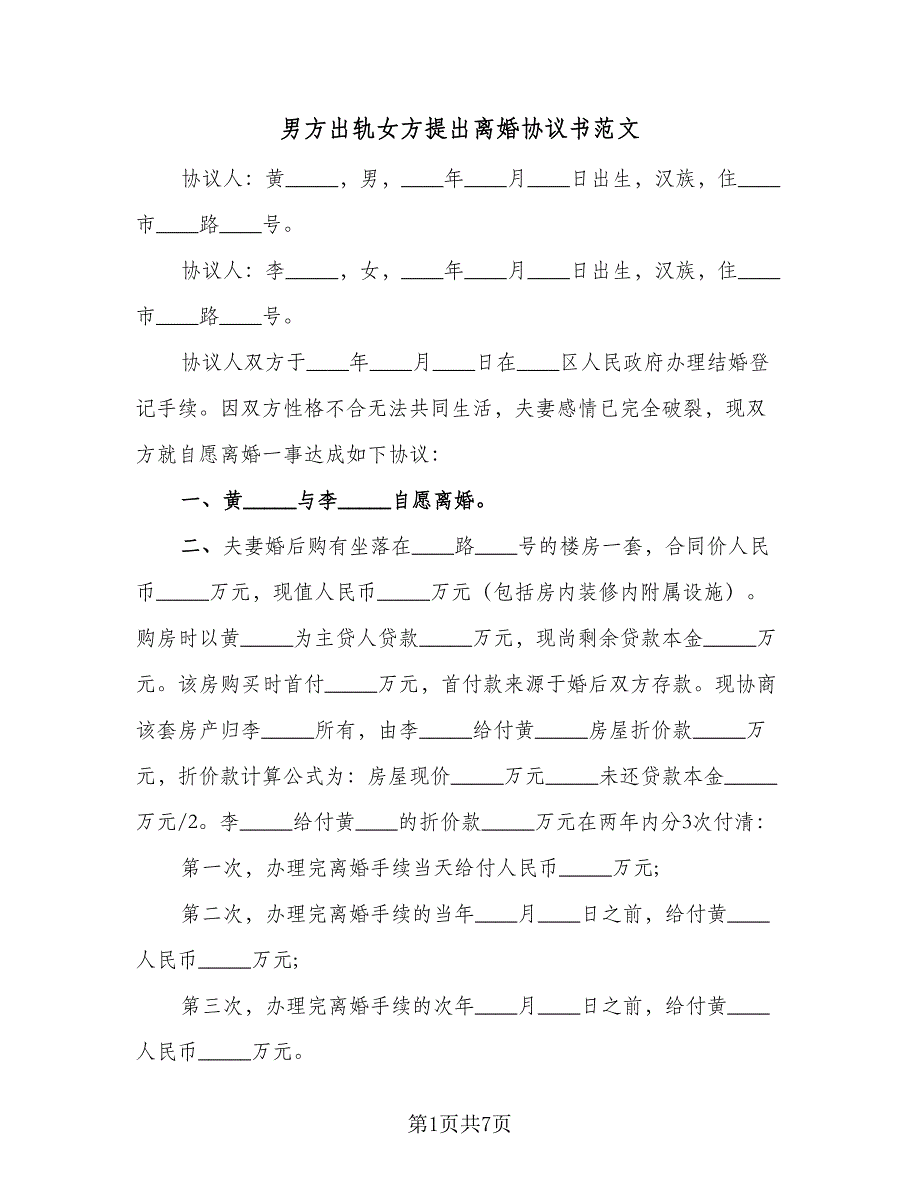 男方出轨女方提出离婚协议书范文
协议人：黄_____，男，____年____月____日出生，汉族，住____
市____路____号。
协议人：李_____，女，____年____月____日出生，汉族，住____
市____路____号。
协议人双方于____年____月____日在____区人民政府办理结婚登
记手续。因双方性格不合无法共同生活，夫妻感情已完全破裂，现双
方就自愿离婚一事达成如下协议：
一、黄_____与李_____自愿离婚。
二、夫妻婚后购有坐落在____路____号的楼房一套，合同价人民
币_____万元，现值人民币_____万元（包括房内装修内附属设施）。
购房时以黄_____为主贷人贷款_____万元，现尚剩余贷款本金_____万
元。该房购买时首付_____万元，首付款来源于婚后双方存款。现协商
该套房产归李_____所有，由李_____给付黄_____房屋折价款_____万
元，折价款计算公式为：房屋现价_____万元_____未还贷款本金_____
万元/2。李_____给付黄____的折价款_____万元在两年内分3次付清：
第一次，办理完离婚手续当天给付人民币_____万元;
第二次，办理完离婚手续的当年____月____日之前，给付黄____
人民币_____万元;
第三次，办理完离婚手续的次年____月____日之前，给付黄____
人民币_____万元。
第1页共7页